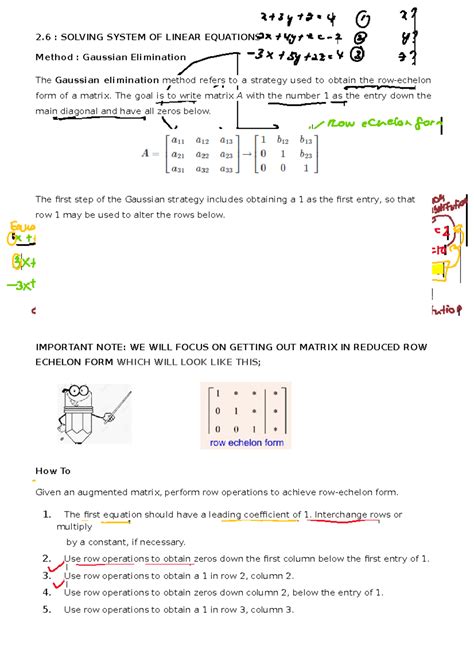 x+3y+z=4 ① x?
2.6 : SOLVING SYSTEM OF LINEAR EQUATIONS 2x+4y+z=-2 ② y?
Method : Gaussian Elimination -3x+5y+2z=4 ③ z?
The Gaussian elimination method refers to a strategy used to obtain the row-echelon
form of a matrix. The goal is to write matrix A with the number 1 as the entry down the
main diagonal and have all zeros below.
row echelon form
A = [a11 a12 a13 → [1 b12 b13
a21 a22 a23 0 1 b23
a31 a32 a33] 0 0 1]
The first step of the Gaussian strategy includes obtaining a 1 as the first entry, so that
row 1 may be used to alter the rows below.
x+
3x+
-3x+
IMPORTANT NOTE: WE WILL FOCUS ON GETTING OUT MATRIX IN REDUCED ROW
ECHELON FORM WHICH WILL LOOK LIKE THIS;
[1 * * | *
0 1 * | *
0 0 1 | *]
row echelon form
How To
Given an augmented matrix, perform row operations to achieve row-echelon form.
1. The first equation should have a leading coefficient of 1. Interchange rows or
multiply
by a constant, if necessary.
2. Use row operations to obtain zeros down the first column below the first entry of 1.
3. Use row operations to obtain a 1 in row 2, column 2.
4. Use row operations to obtain zeros down column 2, below the entry of 1.
5. Use row operations to obtain a 1 in row 3, column 3.